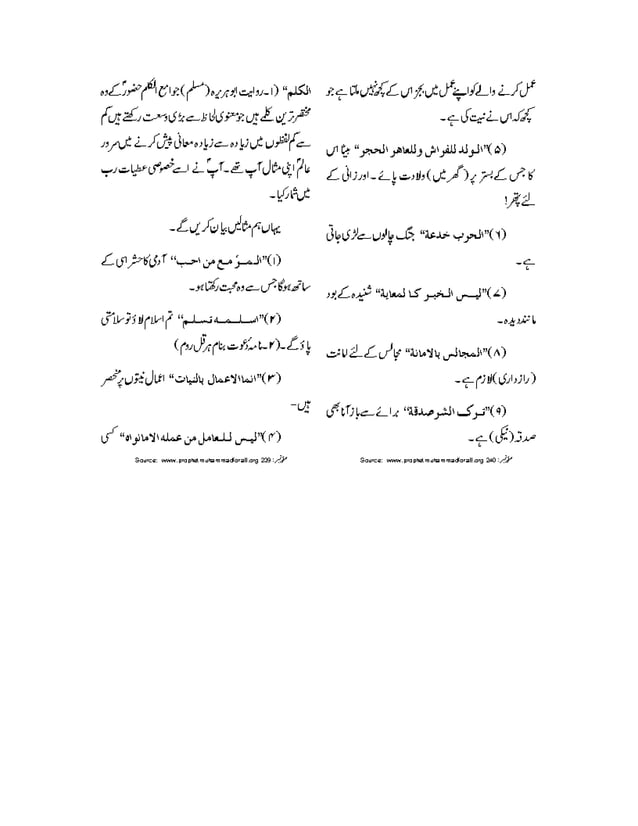 الکلم“ (۱۔روایت ابو ہریرہ (مسلم) جوامع الکلم حضورؐ کے وہ
مختصر ترین کلمے ہیں جو معنوی لحاظ سے بڑی وسعت رکھتے ہیں کم
سے کم لفظوں میں زیادہ سے زیادہ معانی پیش کرنے میں سرور
عالمؐ اپنی مثال آپ تھے۔ آپؐ نے اسے خصوصی عطیات رب
میں شمار کیا۔
یہاں ہم مثالیں بیان کریں گے۔
(۱)”المرؤ مع من احب“ آدمی کا حشر اسی کے
ساتھ ہوگا جس سے وہ محبت رکھتا ہو۔
(۲)”اسلمہ تسلم“ تم اسلام لاؤ تو سلامتی
پاؤ گے۔ (۲۔نامۂ دعوت بنام ہرقل روم)
(۳)”انما الاعمال بالنیات“ اعمال نیتوں پر منحصر
ہیں-
(۴)”لیس للعامل من عملہ الامانواہ“ کسی
Source: www.prophetmuhammadforall.org 239 :صفحہ نمبر
عمل کرنے والے کو اپنے عمل میں بجز اس کے کچھ نہیں ملتا ہے جو
کچھ کہ اس نے نیت کی ہے۔
(۵)”الولد للفواش وللعاھر الحجر“ بیٹا اس
کا جس کے بستر پر (گھر میں) ولادت پائے۔ اور زانی کے
لئے پتھر!
(۶)”الحرب خدعۃ“ جنگ چالوں سے لڑی جاتی
ہے۔
(۷)”لیس الخبر کا لمعایۃ“ شنیدہ کے بود
مانند دیدہ۔
(۸)”المجالس بالامانۃ“ مجالس کے لئے امانت
(رازداری) لازم ہے۔
(۹)”ترک الشر صدقۃ“ برائے سے باز آنا بھی
صدقہ (نیکی) ہے۔
Source: www.prophetmuhammadforall.org 240 :صفحہ نمبر